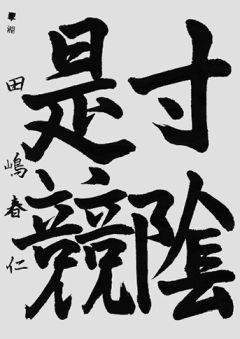 寸陰
是競
田嶋春仁